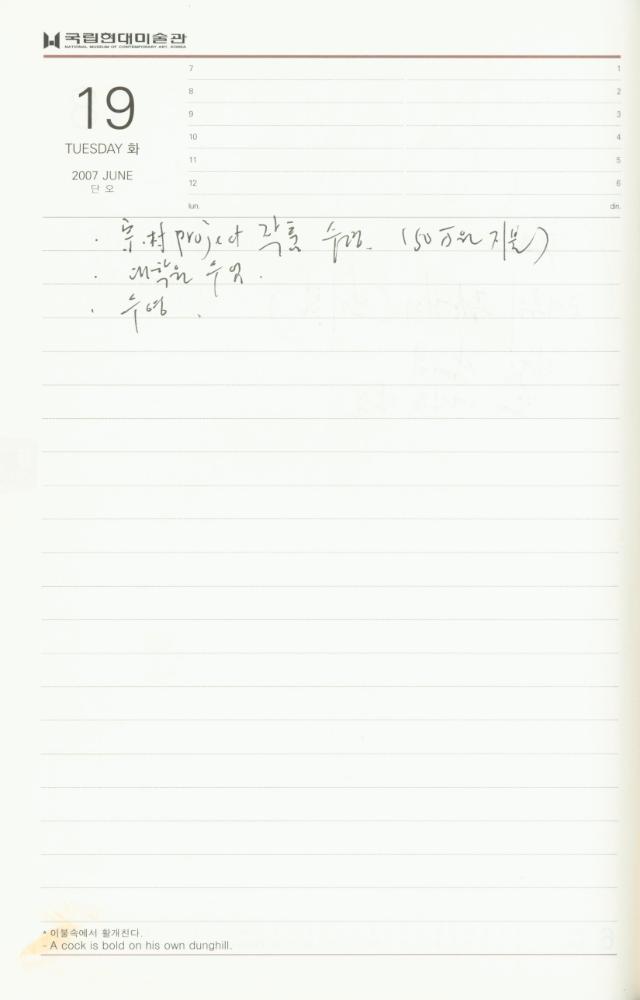 국립현대미술관
NATIONAL MUSEUM OF CONTEMPORARY ART, KOREA
19
TUESDAY 화
2007 JUNE
단 오
7 1
8 2
9 3
10 4
11 5
12 6
lun. din.
· 村 project 작품 수령. (50万원 지불)
· 대학원 수업.
· 수영.
* 이불속에서 활개친다.
- A cock is bold on his own dunghill.